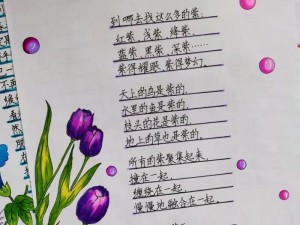 到哪去找这么多的紫。
红紫，浅紫，绛紫。
蓝紫，黑紫，深紫……
紫得耀眼，紫得梦幻。
天上的鸟是紫的，
水里的鱼是紫的，
枝头的花是紫的，
地上的草也是紫的。
所有的紫聚集起来，
撞在一起，
缠绕在一起，
慢慢地融合在一起。